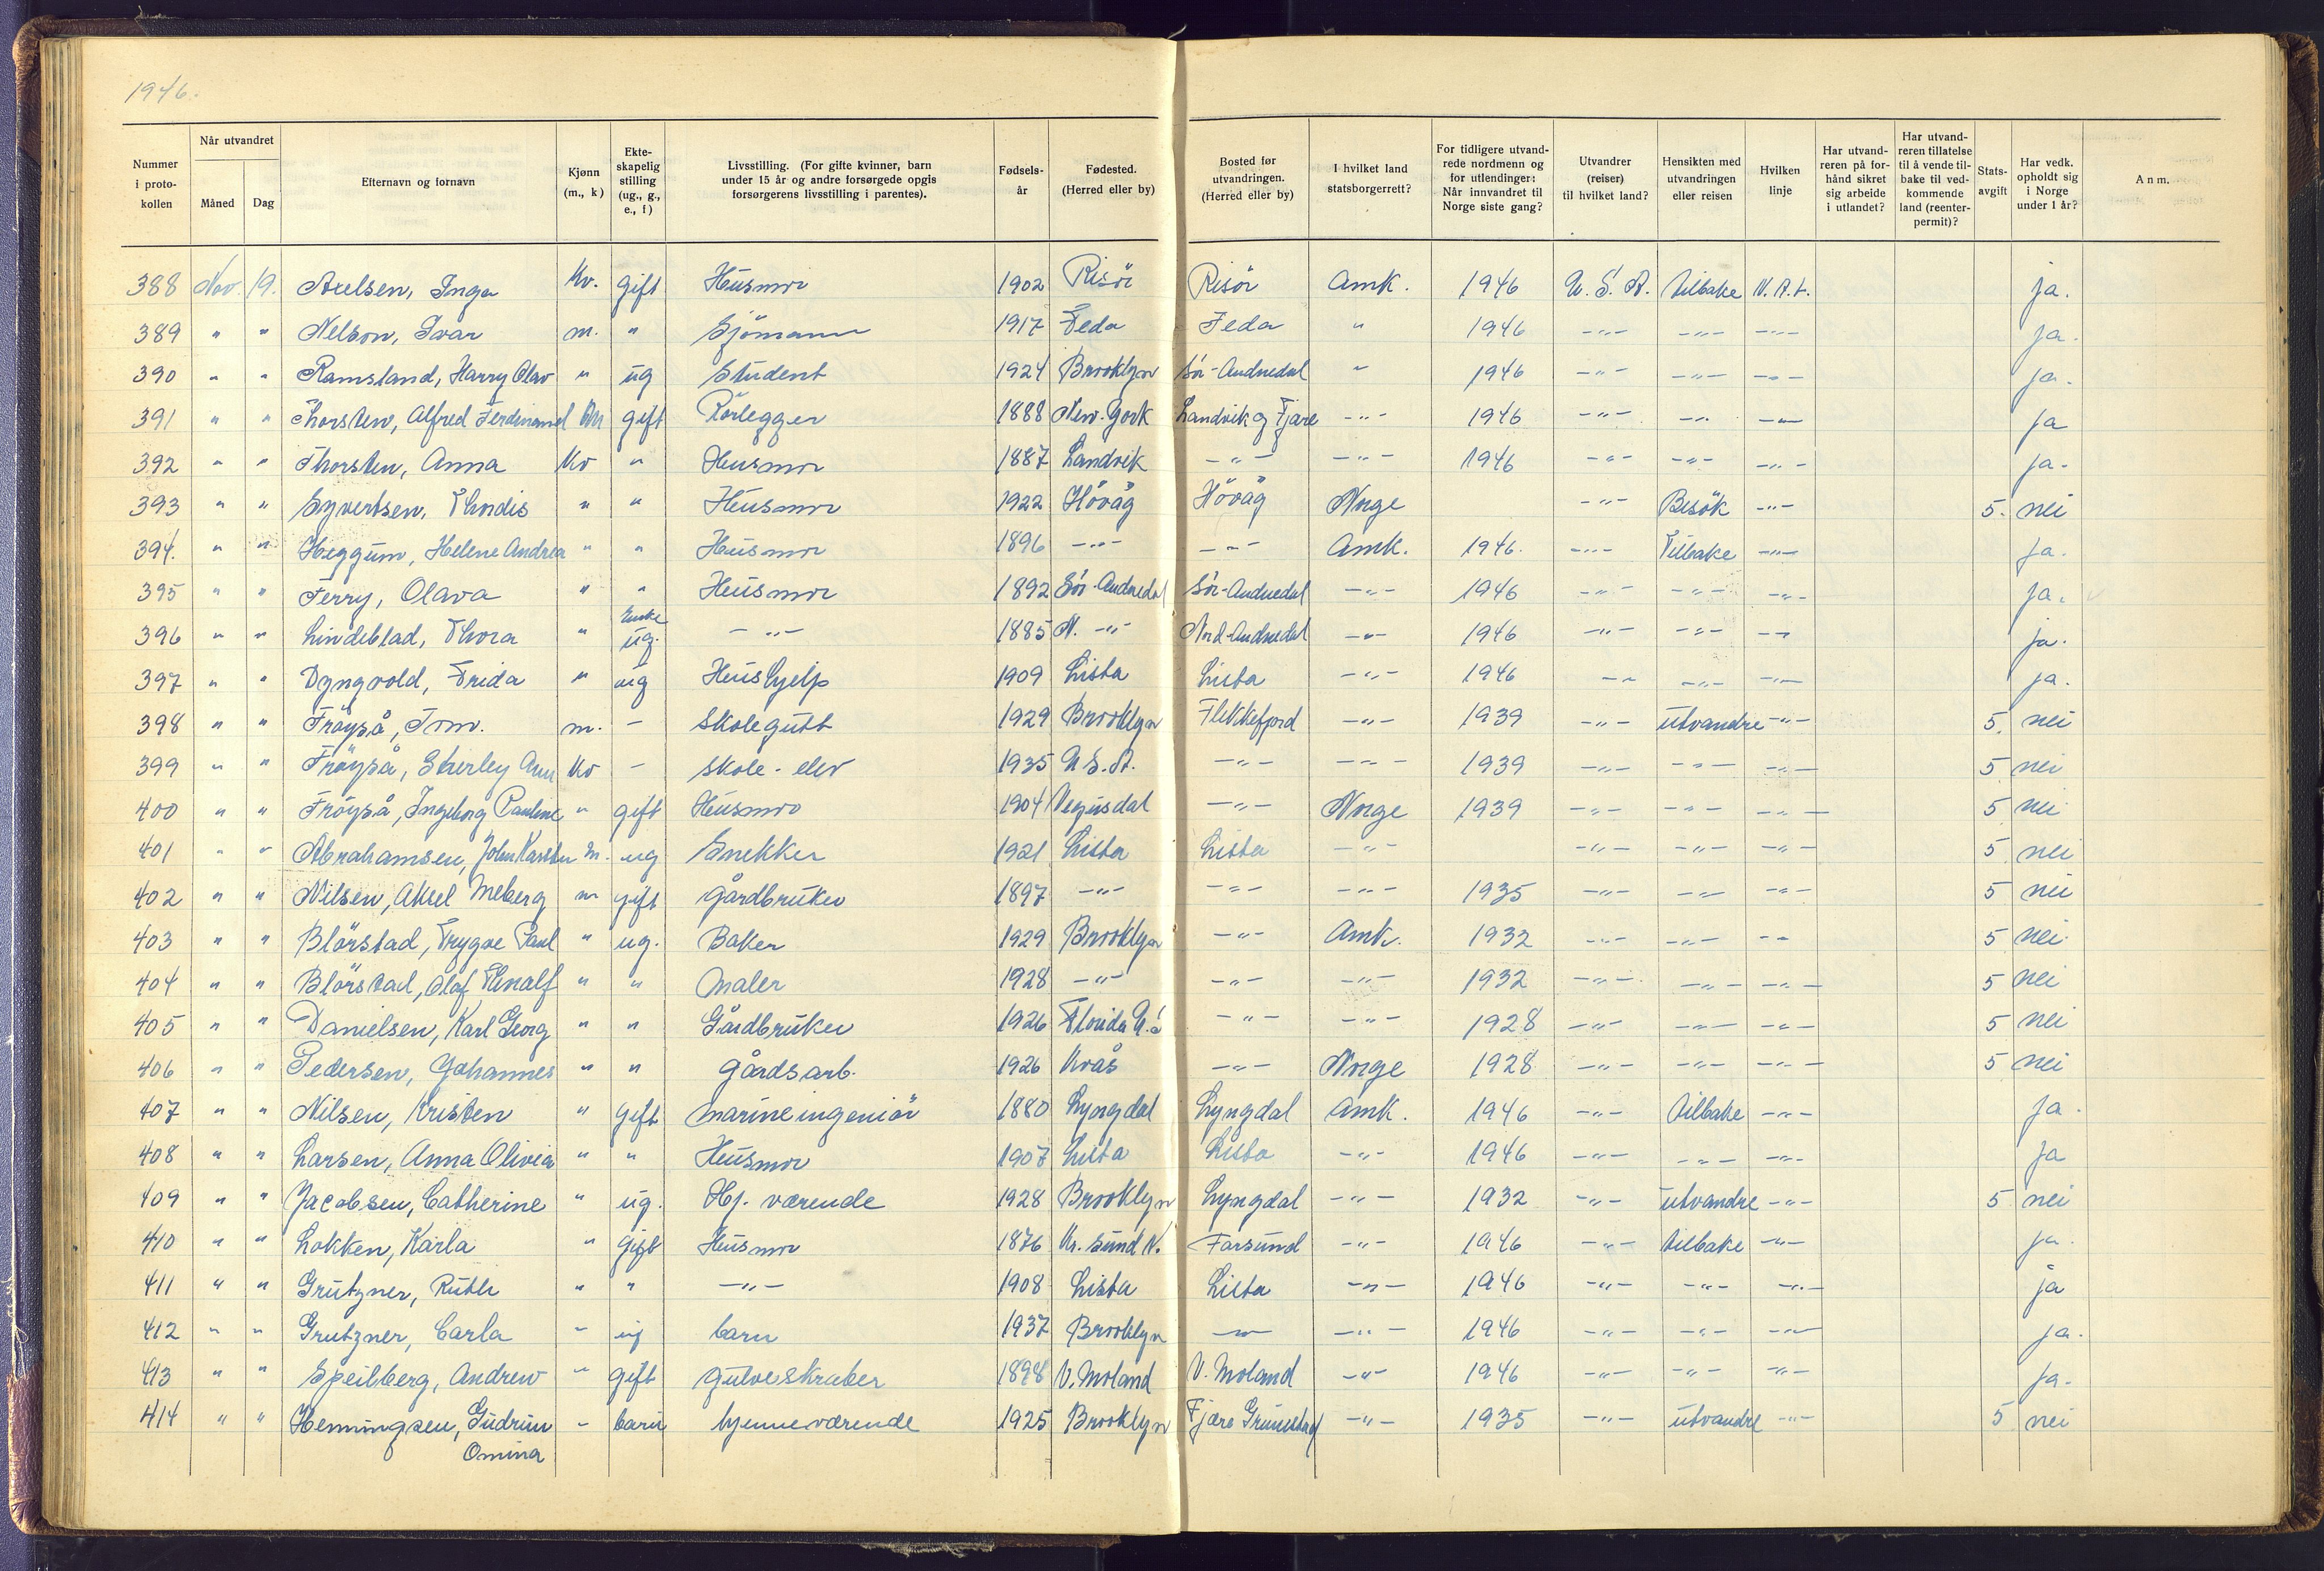 1946.
Nummer i proto-kollen | Når utvandret Måned | Dag | Efternavn og fornavn | Kjønn (m., k) | Ekte-skapelig stilling (ug., g., e., f) | Livsstilling. (For gifte kvinner, barn under 15 år og andre forsørgede opgis forsørgerens livsstilling i parentes). | Fødsels-år | Fødested. (Herred eller by) | Bosted før utvandringen. (Herred eller by) | I hvilket land statsborgerrett? | For tidligere utvand-rede nordmenn og for utlendinger: Når innvandret til Norge siste gang? | Utvandrer (reiser) til hvilket land? | Hensikten med utvandringen eller reisen | Hvilken linje | Har utvand-reren på for-hånd sikret sig arbeide i utlandet? | Har utvand-reren tillatelse til å vende til-bake til ved-kommende land (reenter-permit)? | Stats-avgift | Har vedk. opholdt sig i Norge under 1 år? | Anm.
388 Nov. 19. Axelsen, Inga Kv. gift Husmor 1902 Risör Risör Amk. 1946 U.S.A. tilbake N.A.L. ja.
389 " " Nelson, Ivar m. " Sjömann 1917 Feda Feda " 1946 -"- -"- -"- ja.
390 " " Ramsland, Harry Olav " ug Student 1924 Brooklyn Sör-Audnedal " 1946 -"- -"- -"- ja.
391 " " Thorsten, Alfred Ferdinand gift Rörlegger 1888 New-York Landvik og Fjære -"- 1946 -"- -"- -"- ja
392 " " Thorsten, Anna Kv " Husmor 1887 Landvik -"- -"- 1946 -"- -"- -"- ja.
393 " " Syvertsen, Thordis " " Husmor 1922 Hövåg Hövåg Norge -"- Besök -"- 5. nei
394. " " Heggum, Helene Andrea " " Husmor 1896 -"- -"- Amk. 1946. -"- Tilbake -"- ja.
395 " " Ferry, Olava " " Husmor 1892 Sör-Audnedal Sör-Audnedal -"- 1946 -"- -"- -"- ja.
396 " " Lindeblad, Thora " Enke ug. -"- 1885 N. -"- Nord-Audnedal -"- 1946 -"- -"- -"- ja.
397 " " Dyngvold, Frida " ug Hushjelp 1909 Lista Lista -"- 1946 -"- -"- -"- ja.
398 " " Fröyså, Tom. m. - Skolegutt 1929 Brooklyn Flekkefjord -"- 1939 -"- utvandre -"- 5. nei
399 " " Fröyså, Sherley Ann Kv - skole-elev 1935 U.S.A. -"- -"- 1939 -"- -"- -"- 5 nei
400 " " Fröyså, Ingeborg Pauline " gift Husmor 1904 Vegusdal -"- Norge 1939 -"- -"- -"- 5 nei
401 " " Abrahamsen, John Karsten m. ug Snekker 1921 Lista Lista -"- -"- -"- -"- 5 nei
402 " " Nilsen, Aksel Meberg m gift gårdbruker 1897 -"- -"- -"- 1935 -"- -"- -"- 5 nei
403 " " Blörstad, Trygve Paul " ug. Baker 1929 Brooklyn -"- Amk. 1932 -"- -"- -"- 5 nei
404 " " Blörstad, Olaf Thoralf " " Maler 1928 -"- -"- -"- 1932 -"- -"- -"- 5 nei
405 " " Danielsen, Karl Georg " " Gårdbruker 1926 Florida U.S -"- -"- 1928 -"- -"- -"- 5 nei
406 " " Pedersen, Johannes " " gårdsarb. 1926 Kvås -"- Norge 1928 -"- -"- -"- 5 nei
407 " " Nilsen, Kristen " gift marineingeniör 1880 Lyngdal Lyngdal Amk. 1946 -"- tilbake -"- ja.
408 " " Larsen, Anna Olivia " " Husmor 1907 Lista Lista -"- 1946 -"- -"- -"- ja
409 " " Jacobsen, Catherine " ug. Hj. værende 1928 Brooklyn Lyngdal -"- 1932 -"- utvandre -"- 5 nei
410 " " Lokken, Karla " gift Husmor 1876 Kr. Sund N. Farsund -"- 1946 -"- tilbake -"- ja.
411 " " Grutzner, Ruth " " -"- 1908 Lista Lista -"- 1946 -"- -"- -"- ja
412 " " Grutzner, Carla " ug barn 1937 Brooklyn -"- -"- 1946 -"- -"- -"- ja.
413 " " Speilberg, Andrew " gift gulveskraber 1898 V. Moland V. Moland -"- 1946 -"- -"- -"- ja.
414 " " Henningsen, Gudrun " barn hjemmeværende 1925 Brooklyn Fjære Grimstad -"- 1935 -"- utvandre -"- 5 nei
Omina